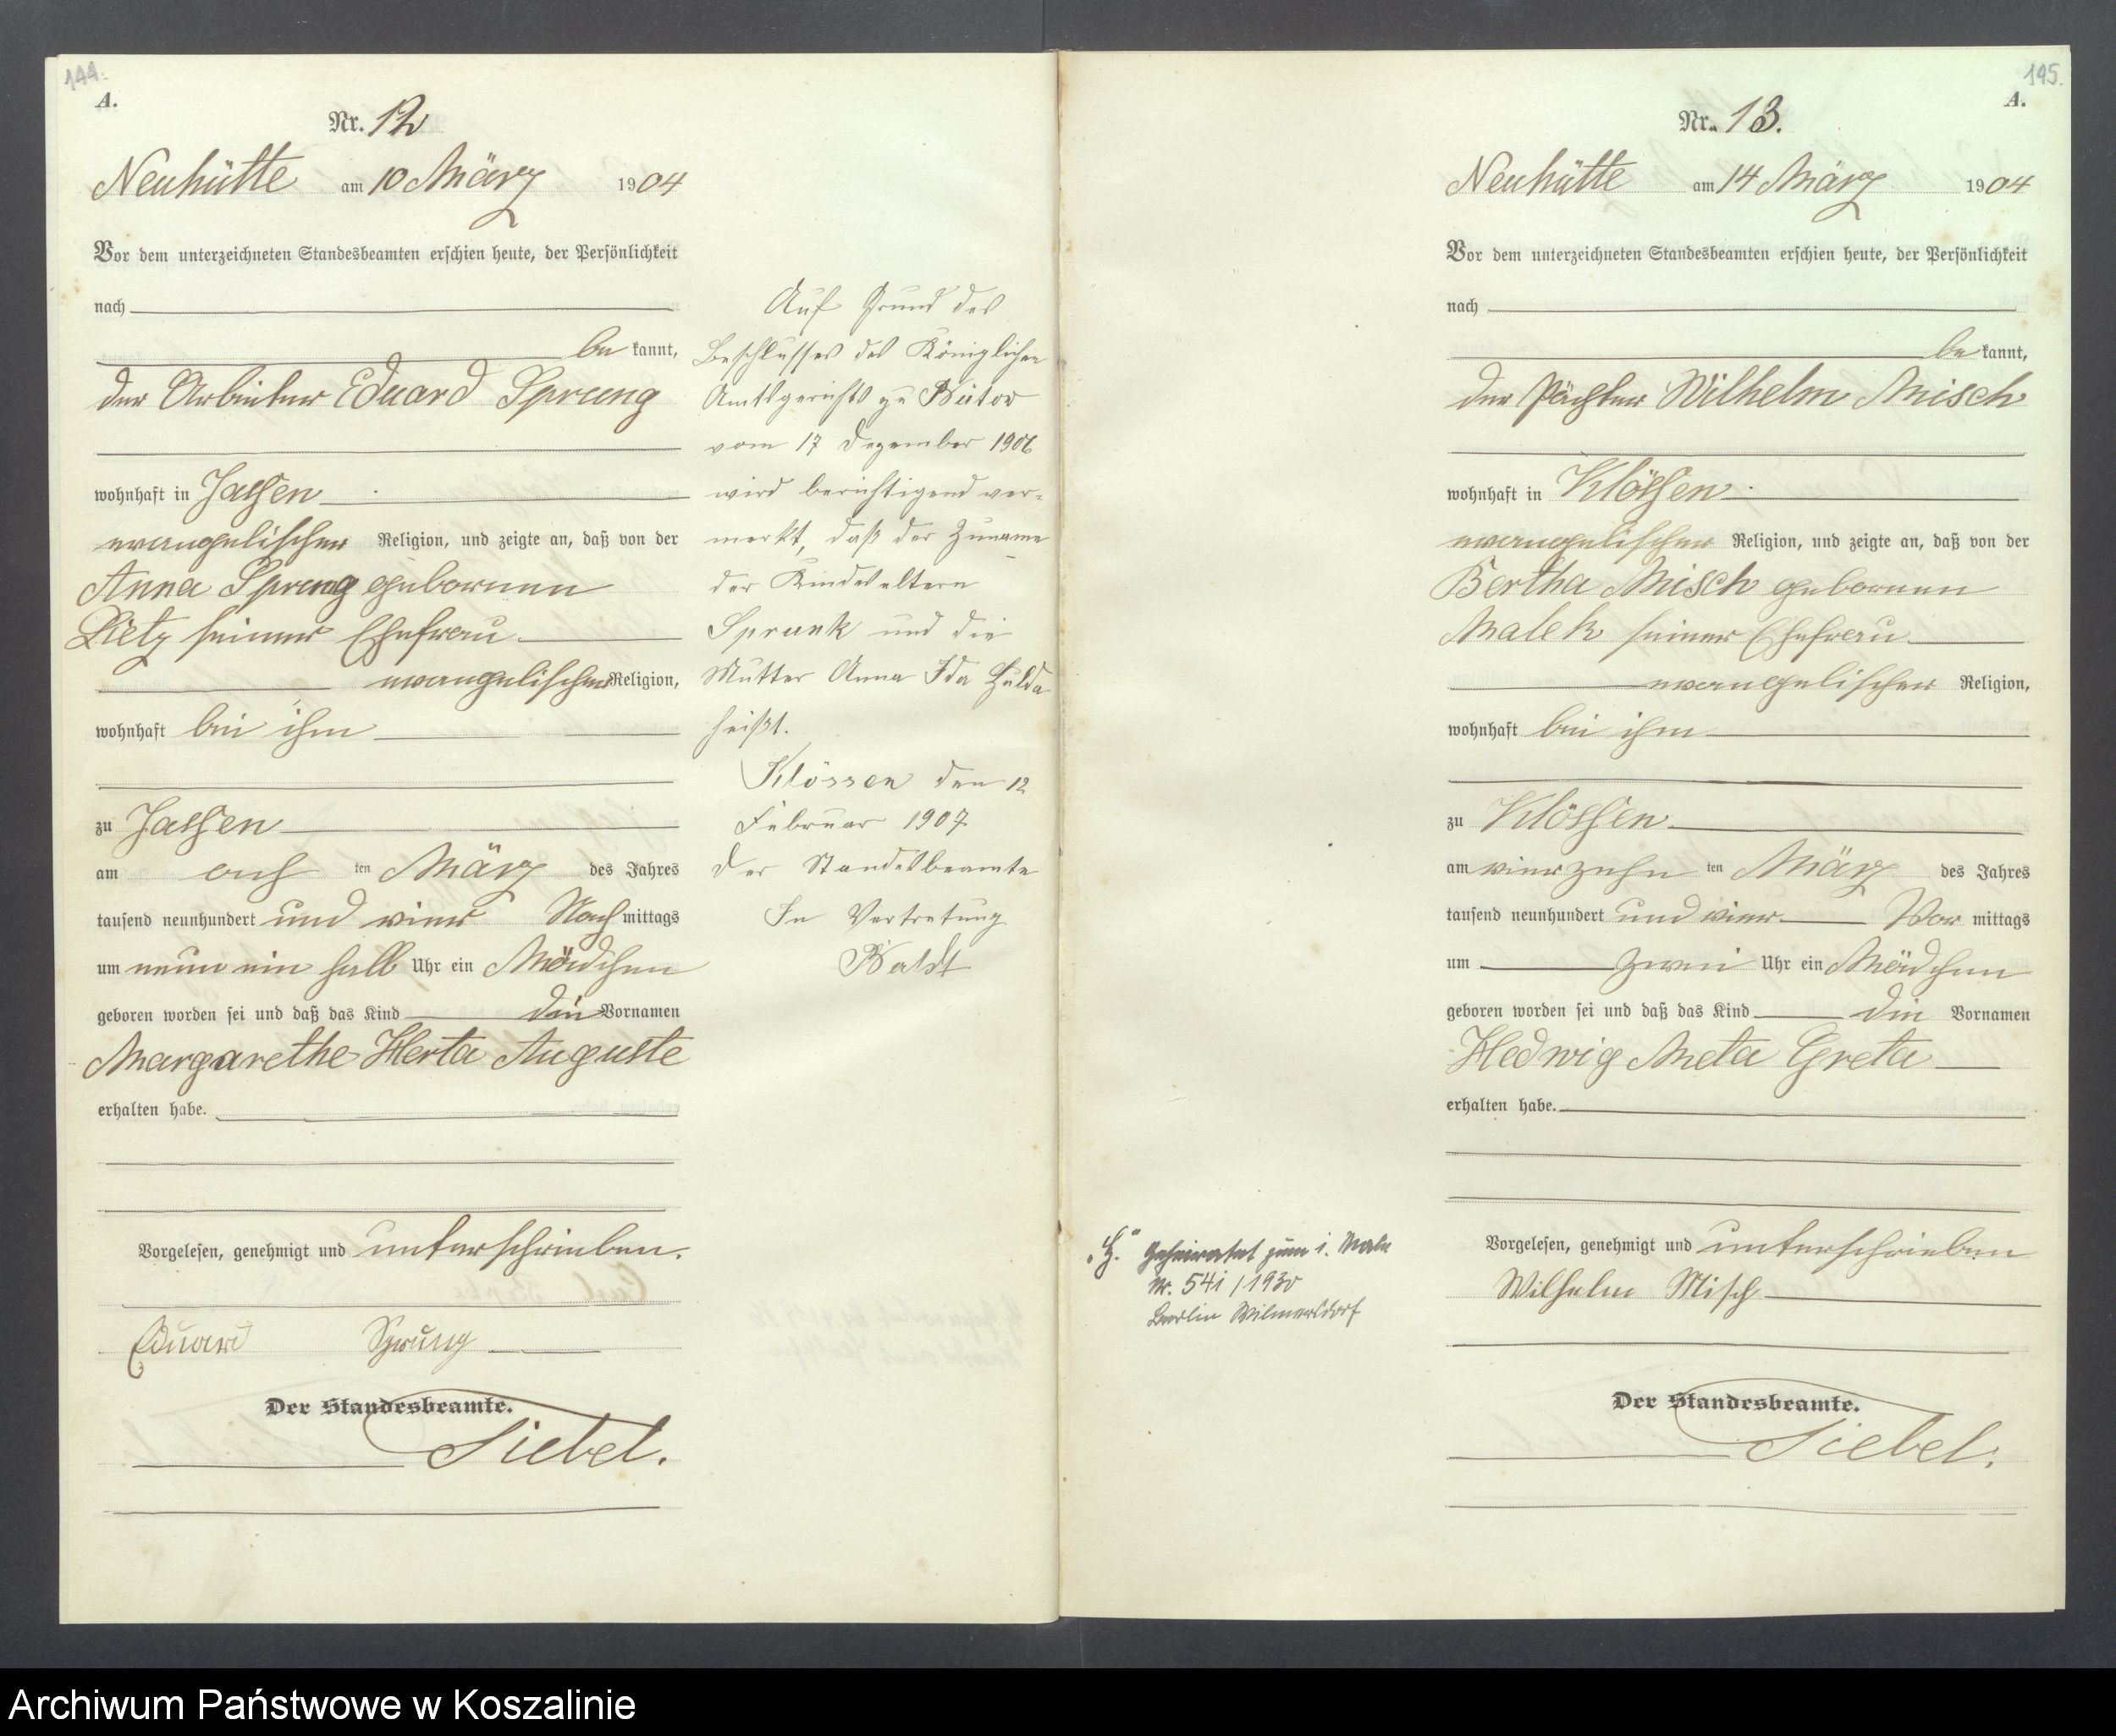 144.
A.
Nr. 12
Neuhütte am 10 März 1904
Vor dem unterzeichneten Standesbeamten erschien heute, der Persönlichkeit
nach
be kannt,
der Arbeiter Eduard Sprung
wohnhaft in Jassen
evangelischer Religion, und zeigte an, daß von der
Anna Sprung geborenen
Lietz seiner Ehefrau
evangelischer Religion,
wohnhaft bei ihm
zu Jassen
am ach ten März des Jahres
tausend neunhundert und vier Nach mittags
um neun ein halb Uhr ein Mädchen
geboren worden sei und daß das Kind die Vornamen
Margarethe Herta Auguste
erhalten habe.
Vorgelesen, genehmigt und unterschrieben.
Eduard Sprung
Der Standesbeamte.
Siebel.
Auf Grund des
Beschlusses des Königlichen
Amtsgerichts zu Bütow
vom 17 Dezember 1906
wird berichtigend ver-
merkt, daß der Zuname
der Kindeseltern
Sprunk und die
Mutter Anna Ida Hulda
heißt.
Klössen den 12
Februar 1907
Der Standesbeamte
In Vertretung
Boldt
145.
A.
Nr. 13.
Neuhütte am 14 März 1904
Vor dem unterzeichneten Standesbeamten erschien heute, der Persönlichkeit
nach
be kannt,
der Pächter Wilhelm Misch
wohnhaft in Klössen
evangelischer Religion, und zeigte an, daß von der
Bertha Misch geborenen
Malek seiner Ehefrau
evangelischer Religion,
wohnhaft bei ihm
zu Klössen
am vierzehn ten März des Jahres
tausend neunhundert und vier Vor mittags
um zwei Uhr ein Mädchen
geboren worden sei und daß das Kind die Vornamen
Hedwig Meta Greta
erhalten habe.
Vorgelesen, genehmigt und unterschrieben
Wilhelm Misch
Der Standesbeamte.
Siebel.
„H." Geheiratet zum 1. Male
Nr. 541/1930
Berlin Wilmersdorf
Archiwum Państwowe w Koszalinie